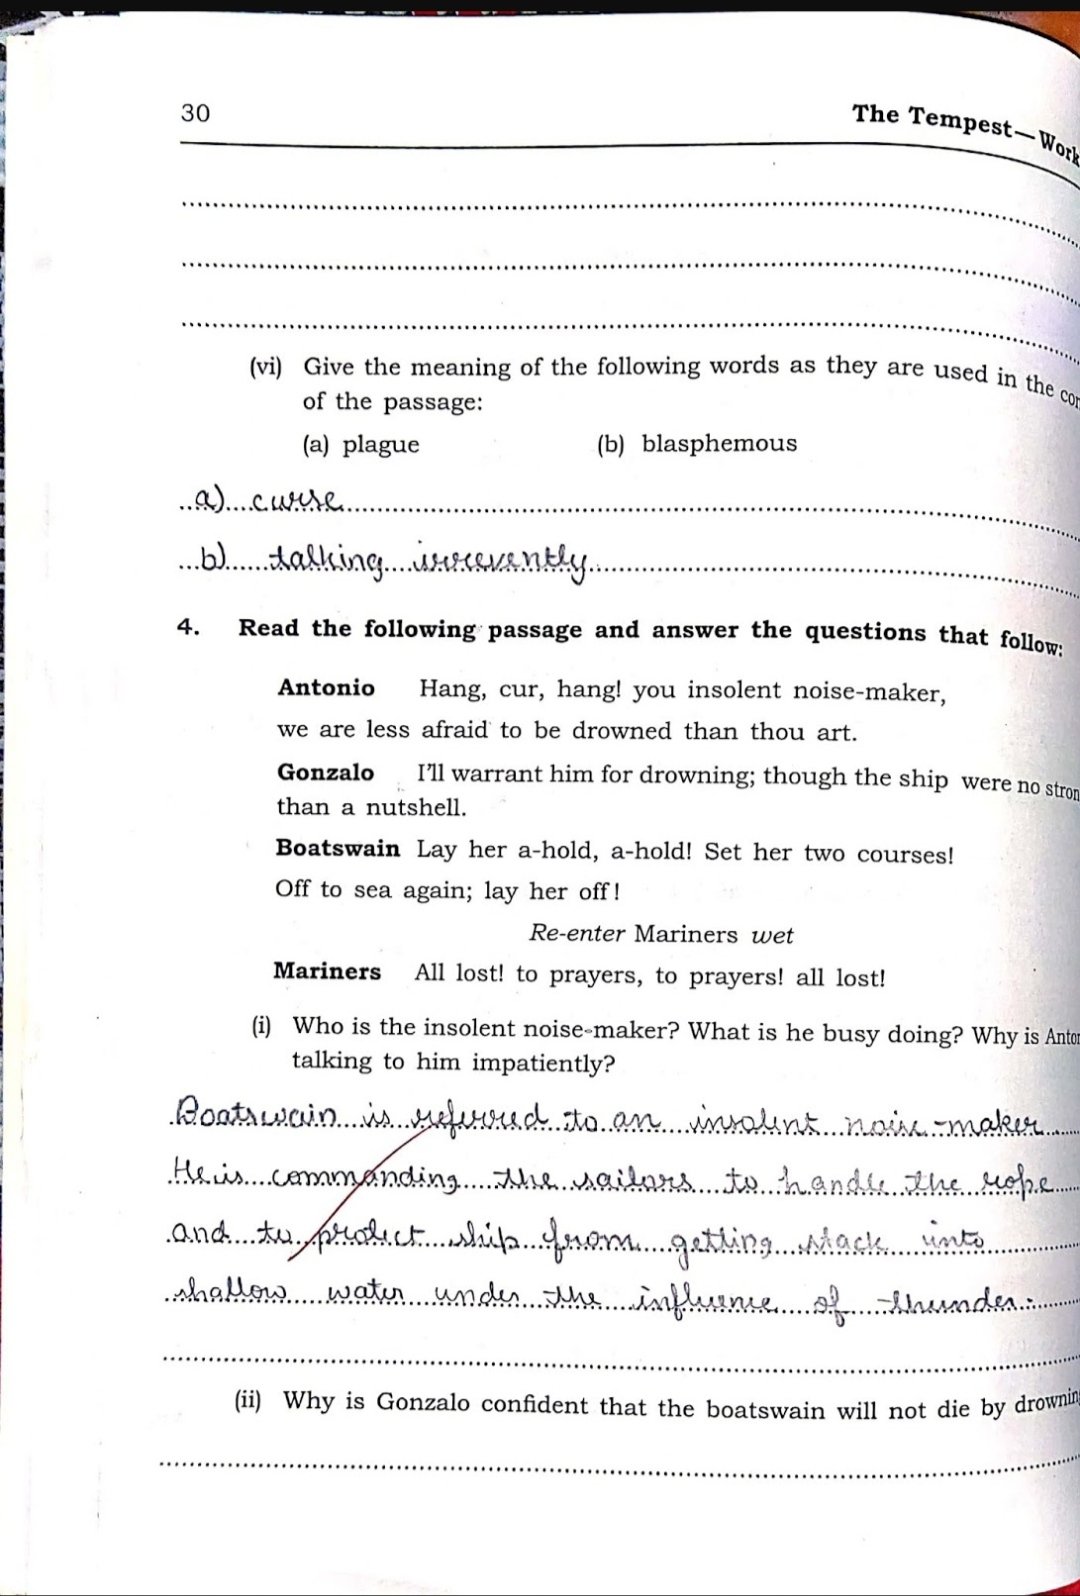 30
The Tempest—Work
(vi) Give the meaning of the following words as they are used in the con
of the passage:
(a) plague (b) blasphemous
a) curse
b) talking irrevently
4. Read the following passage and answer the questions that follow:
Antonio Hang, cur, hang! you insolent noise-maker,
we are less afraid to be drowned than thou art.
Gonzalo I'll warrant him for drowning; though the ship were no stron
than a nutshell.
Boatswain Lay her a-hold, a-hold! Set her two courses!
Off to sea again; lay her off!
Re-enter Mariners wet
Mariners All lost! to prayers, to prayers! all lost!
(i) Who is the insolent noise-maker? What is he busy doing? Why is Anton
talking to him impatiently?
Boatswain is referred to an insolent noise-maker
He is commanding the sailors to handle the rope
and to protect ship from getting stack into
shallow water under the influence of thunder.
(ii) Why is Gonzalo confident that the boatswain will not die by drowning